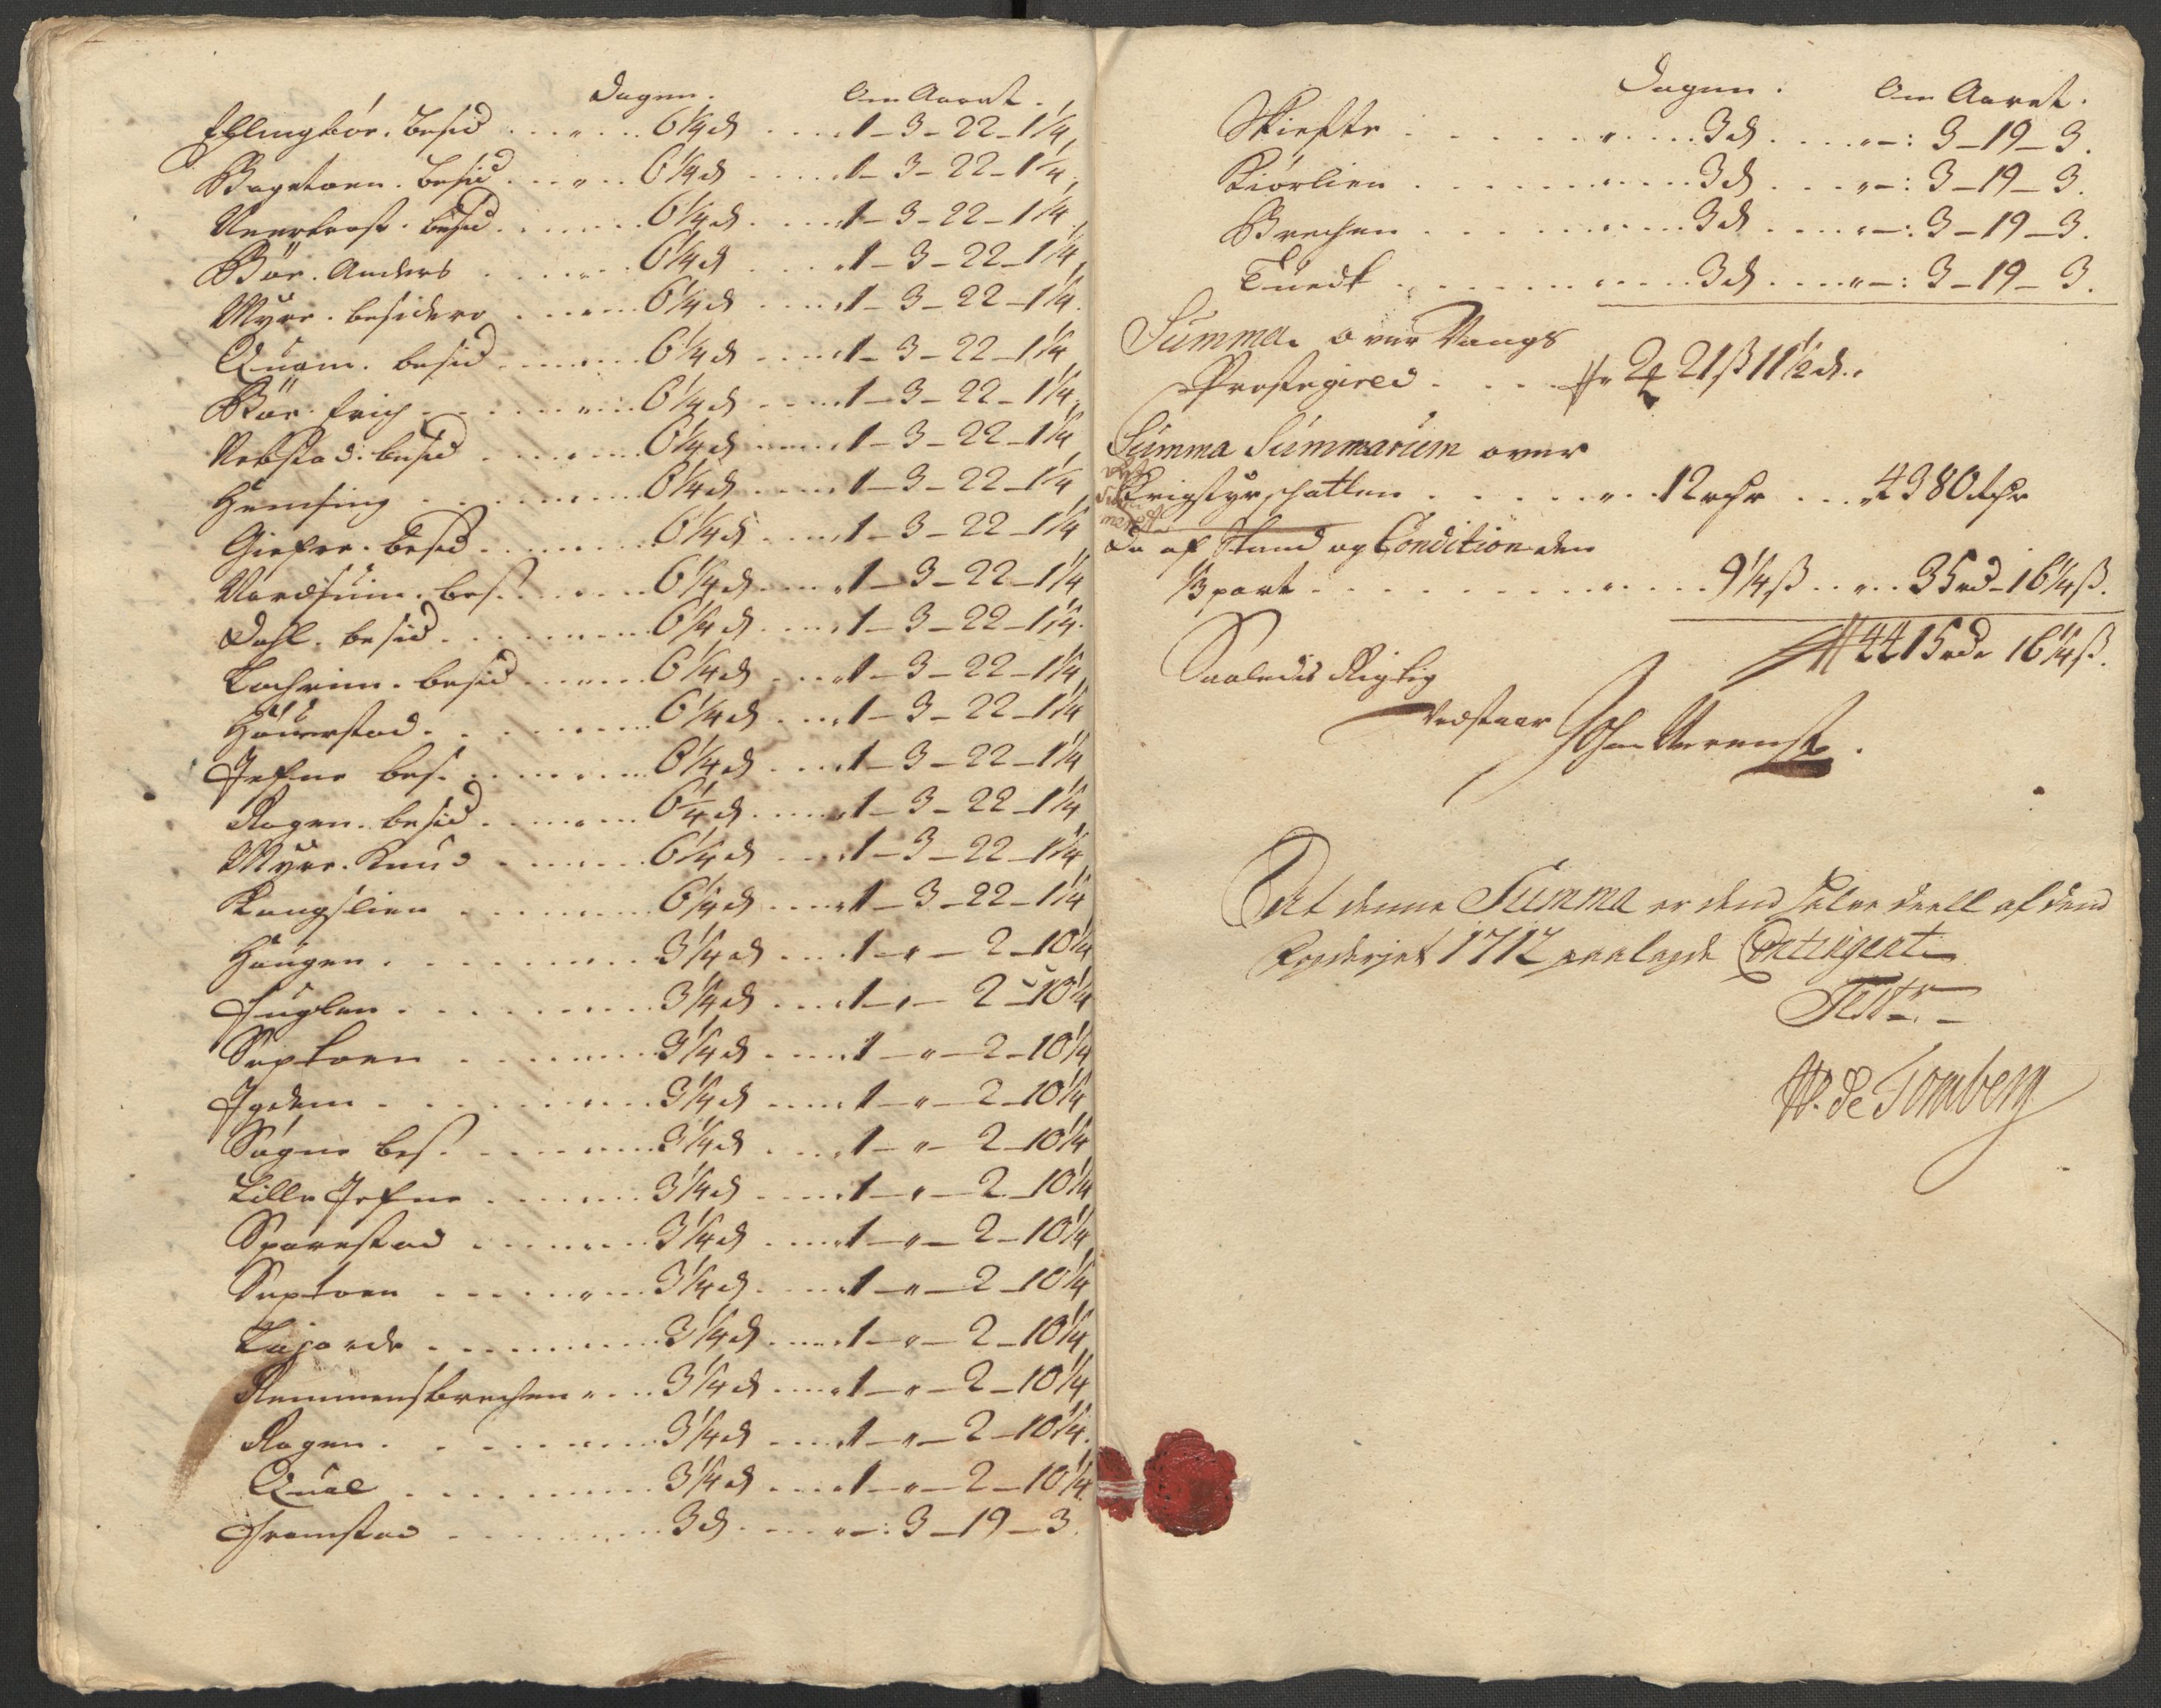 Dagen. Om Aaret.
Ellingbör. besid 6¼ d 1 - 3 - 22 - 1¼
Bagetoen. besid 6¼ d 1 - 3 - 22 - 1¼
besid 6¼ d 1 - 3 - 22 - 1¼
Böe. Anders 6¼ d 1 - 3 - 22 - 1¼
Myre. besidere 6¼ d 1 - 3 - 22 - 1¼
Quam. besid 6¼ d 1 - 3 - 22 - 1¼
Böe. Erich 6¼ d 1 - 3 - 22 - 1¼
Nebstad. besid 6¼ d 1 - 3 - 22 - 1¼
Hemsing 6¼ d 1 - 3 - 22 - 1¼
Giefre. besid 6¼ d 1 - 3 - 22 - 1¼
Nordsuin. bes. 6¼ d 1 - 3 - 22 - 1¼
Dahl. besid 6¼ d 1 - 3 - 22 - 1¼
besid 6¼ d 1 - 3 - 22 - 1¼
Höuerstad 6¼ d 1 - 3 - 22 - 1¼
Jefne bes. 6¼ d 1 - 3 - 22 - 1¼
Rogen. besid 6¼ d 1 - 3 - 22 - 1¼
Myre. Knud 6¼ d 1 - 3 - 22 - 1¼
Kongslien 6¼ d 1 - 3 - 22 - 1¼
Hougen 3¼ d 1 - " - 2 - 10¼
Fuglen 3¼ d 1 - " - 2 - 10¼
Søptoen 3¼ d 1 - " - 2 - 10¼
Jgdem 3¼ d 1 - " - 2 - 10¼
Sögne bes. 3¼ d 1 - " - 2 - 10¼
Lille Jefne 3¼ d 1 - " - 2 - 10¼
Sparestad 3¼ d 1 - " - 2 - 10¼
Søptoen 3¼ d 1 - " - 2 - 10¼
Lajorde 3¼ d 1 - " - 2 - 10¼
Remmensbrechen 3¼ d 1 - " - 2 - 10¼
Rogen 3¼ d 1 - " - 2 - 10¼
Quale 3¼ d 1 - " - 2 - 10¼
Framstad 3 d " - : 3 - 19 - 3.
Dagen. Om Aaret.
Skiefte 3 d " - : 3 - 19 - 3.
Kiörlien 3 d " - : 3 - 19 - 3.
Brechen 3 d " - : 3 - 19 - 3.
Tuedt 3 d " - : 3 - 19 - 3.
Summa over Vangs
Prestegield 2 21 ß 11½ d.
Summa Summarum over
Krigstyrschatten 12 rdr 4380 rdr
Do af Stand og Condition den
⅓ part 9¼ ß 35 rd - 16¼ ß.
4415 rd. 16¼ ß.
Saaledes Rigtig
Vedstaar
At denne Summa er dend halve deell af dend
1712 paalagde Contingent
Test.
W. de Tonsberg